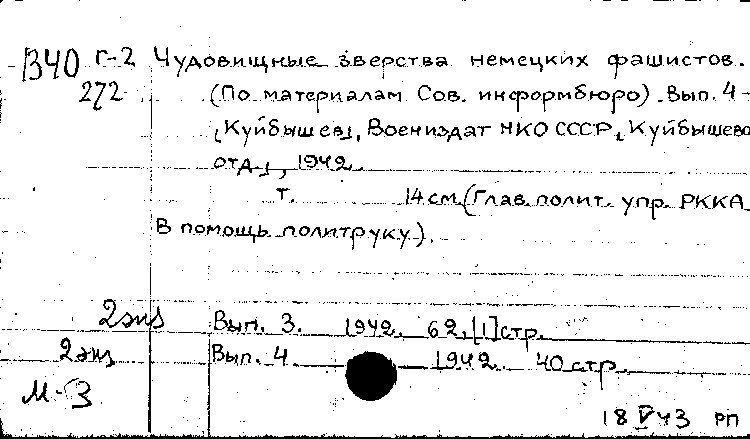 В40 Г-2 Чудовищные зверства немецких фашистов.
272 (По материалам Сов. информбюро). Вып. 4-
[Куйбышев], Воениздат НКО СССР, [Куйбышевс
отд.], 1942.
т. 14 см. (Глав. полит. упр. РККА
В помощь политруку).
2 экз Вып. 3. 1942. 62, [1] стр.
2 экз Вып. 4. 1942 40 стр.
М-З
18 V 43 РП